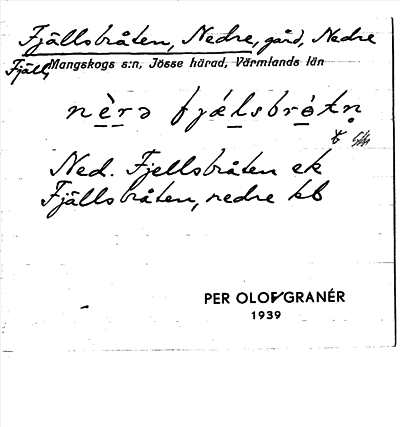 Fjällsbråten, Nedre, gård, Nedre
Fjäll,
Mangskogs s:n, Jösse härad, Värmlands län
nèrə fjælsbrɵ̀tn̥
Ned. Fjellsbråten ek
Fjällsbråten, nedre kb
PER OLOF GRANÉR
1939